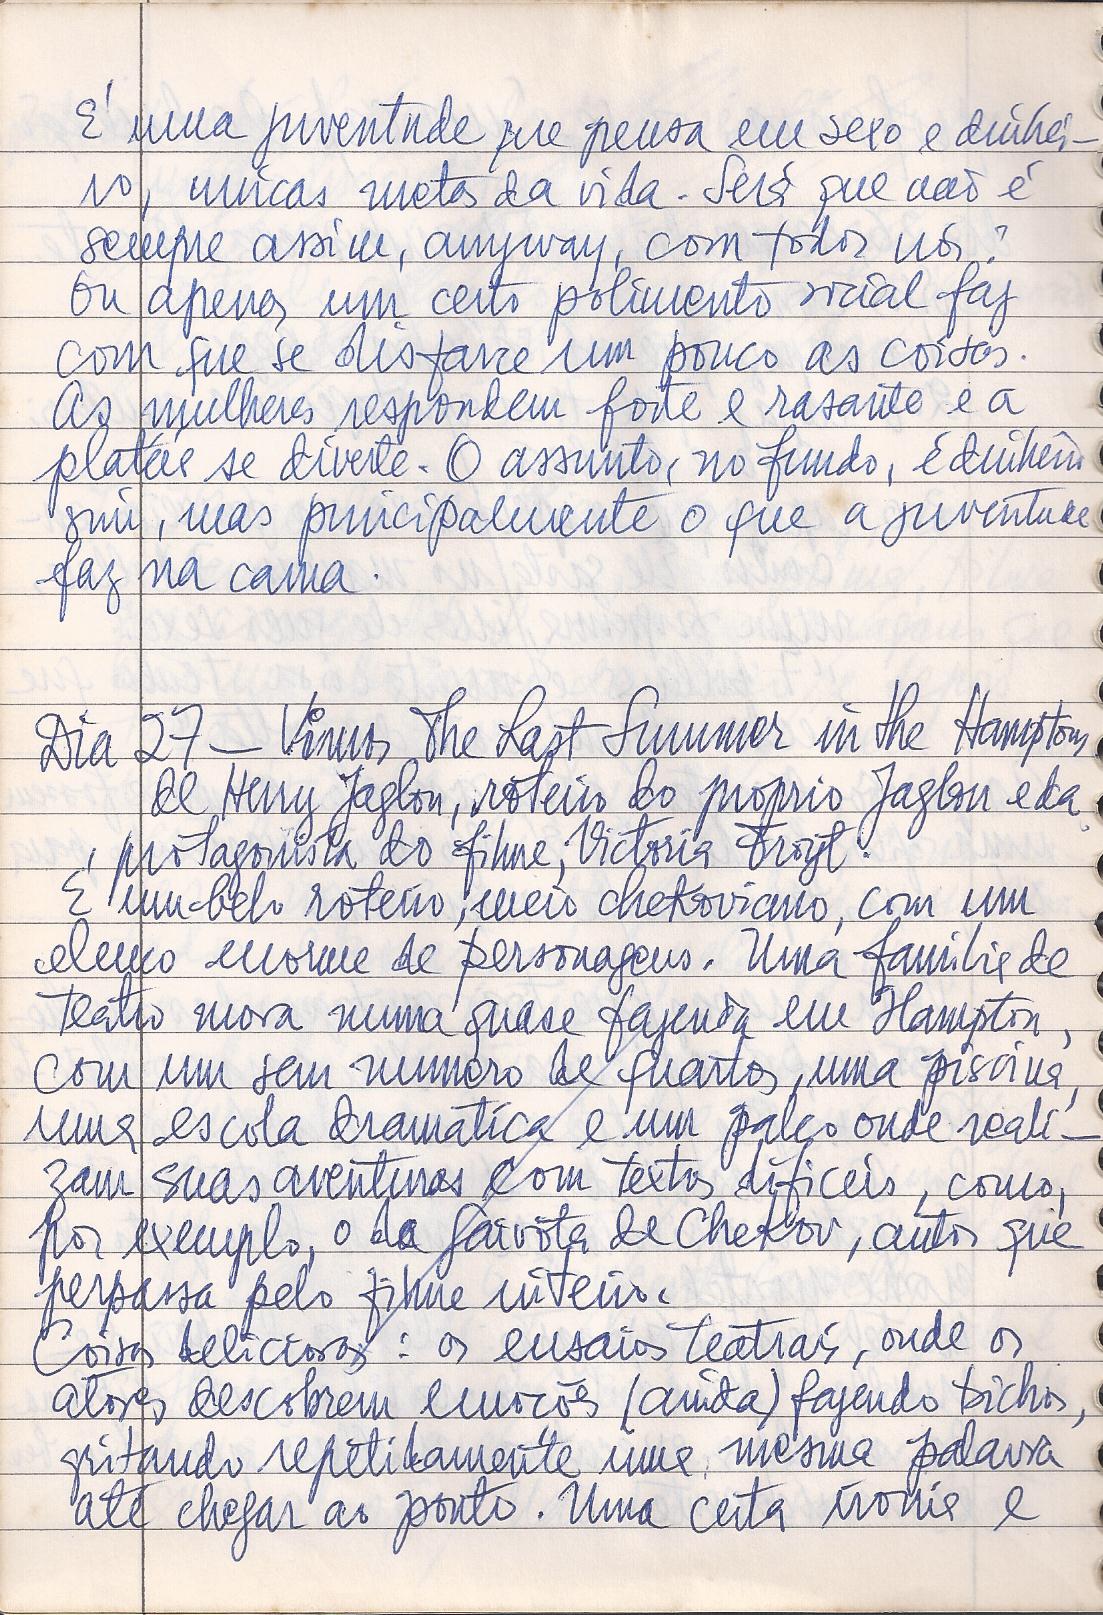 É uma juventude que pensa em sexo e dinhei-
ro, únicas metas da vida. Será que não é
sempre assim, anyway, com todos nós?
Ou apenas um certo polimento social faz
com que se disfarce um pouco as coisas.
As mulheres respondem forte e rasante e a
platéia se diverte. O assunto, no fundo, é dinheiro
sim, mas principalmente o que a juventude
faz na cama.
Dia 27 — Vimos The Last Summer in the Hamptons
de Henry Jaglon, roteiro do proprio Jaglon e da
protagonista do filme, Victoria Froyt.
É um belo roteiro, meio chekoviano, com um
elenco enorme de personagens. Uma familia de
teatro mora numa quase fazenda em Hampton,
com um sem numero de quartos, uma piscina,
uma escola dramática e um palco onde reali-
zam suas aventuras com textos dificeis, como,
por exemplo, o da Gaivota de Chekov, autor que
perpassa pelo filme inteiro.
Coisas deliciosas: os ensaios teatrais, onde os
atores descobrem emoções (ainda) fazendo bichos,
gritando repetidamente uma mesma palavra
até chegar ao ponto. Uma certa ironia e